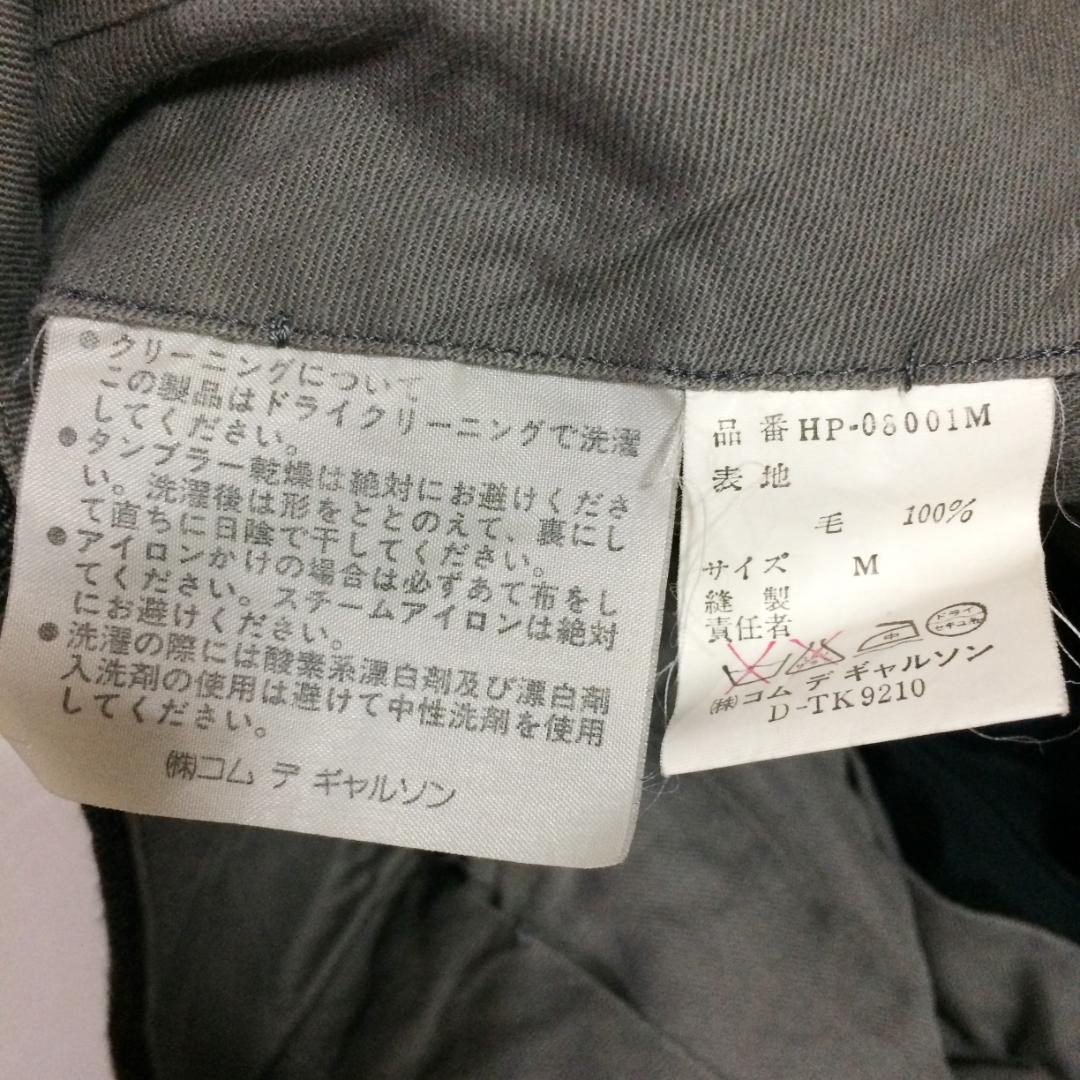 ● クリーニングについて
この製品はドライクリーニングで洗濯
してください。
● タンブラー乾燥は絶対にお避けくださ
い。洗濯後は形をととのえて、裏にし
て直ちに日陰で干してください。
● アイロンかけの場合は必ずあて布をし
てください。スチームアイロンは絶対
にお避けください。
● 洗濯の際には酸素系漂白剤及び漂白剤
入洗剤の使用は避けて中性洗剤を使用
してください。
㈱コム デ ギャルソン
品番 HP-08001M
表地
毛 100%
サイズ M
縫製
責任者
中 ドライ
セキユ系
㈱コム デ ギャルソン
D-TK9210